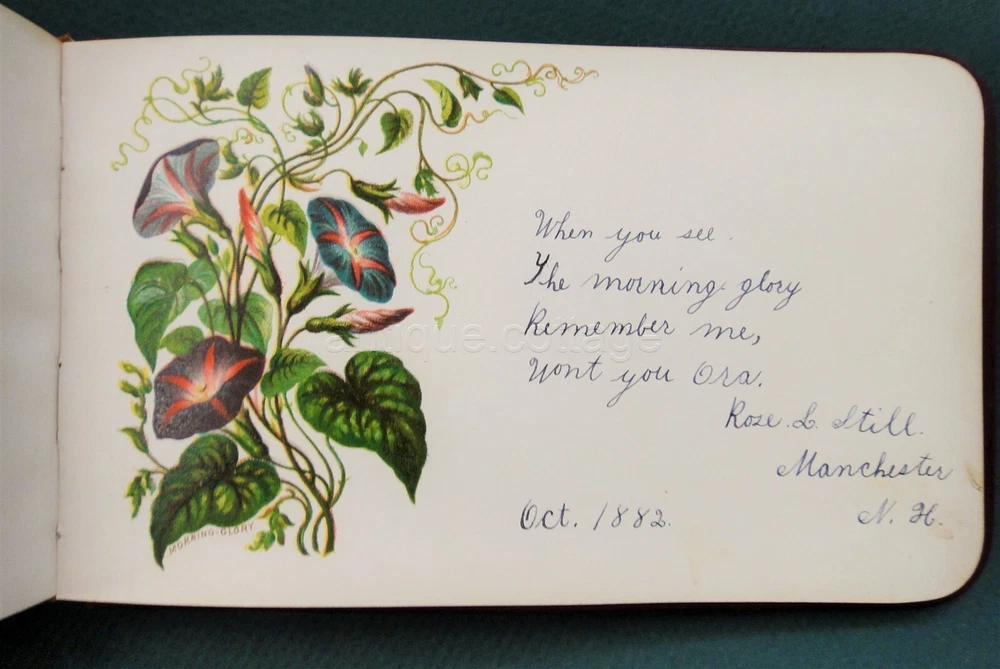 When you see.
The morning glory
Remember me,
Wont you Ora.
Roze. L. Still.
Manchester
N. H.
Oct. 1882.
MORNING-GLORY
antique.cottage